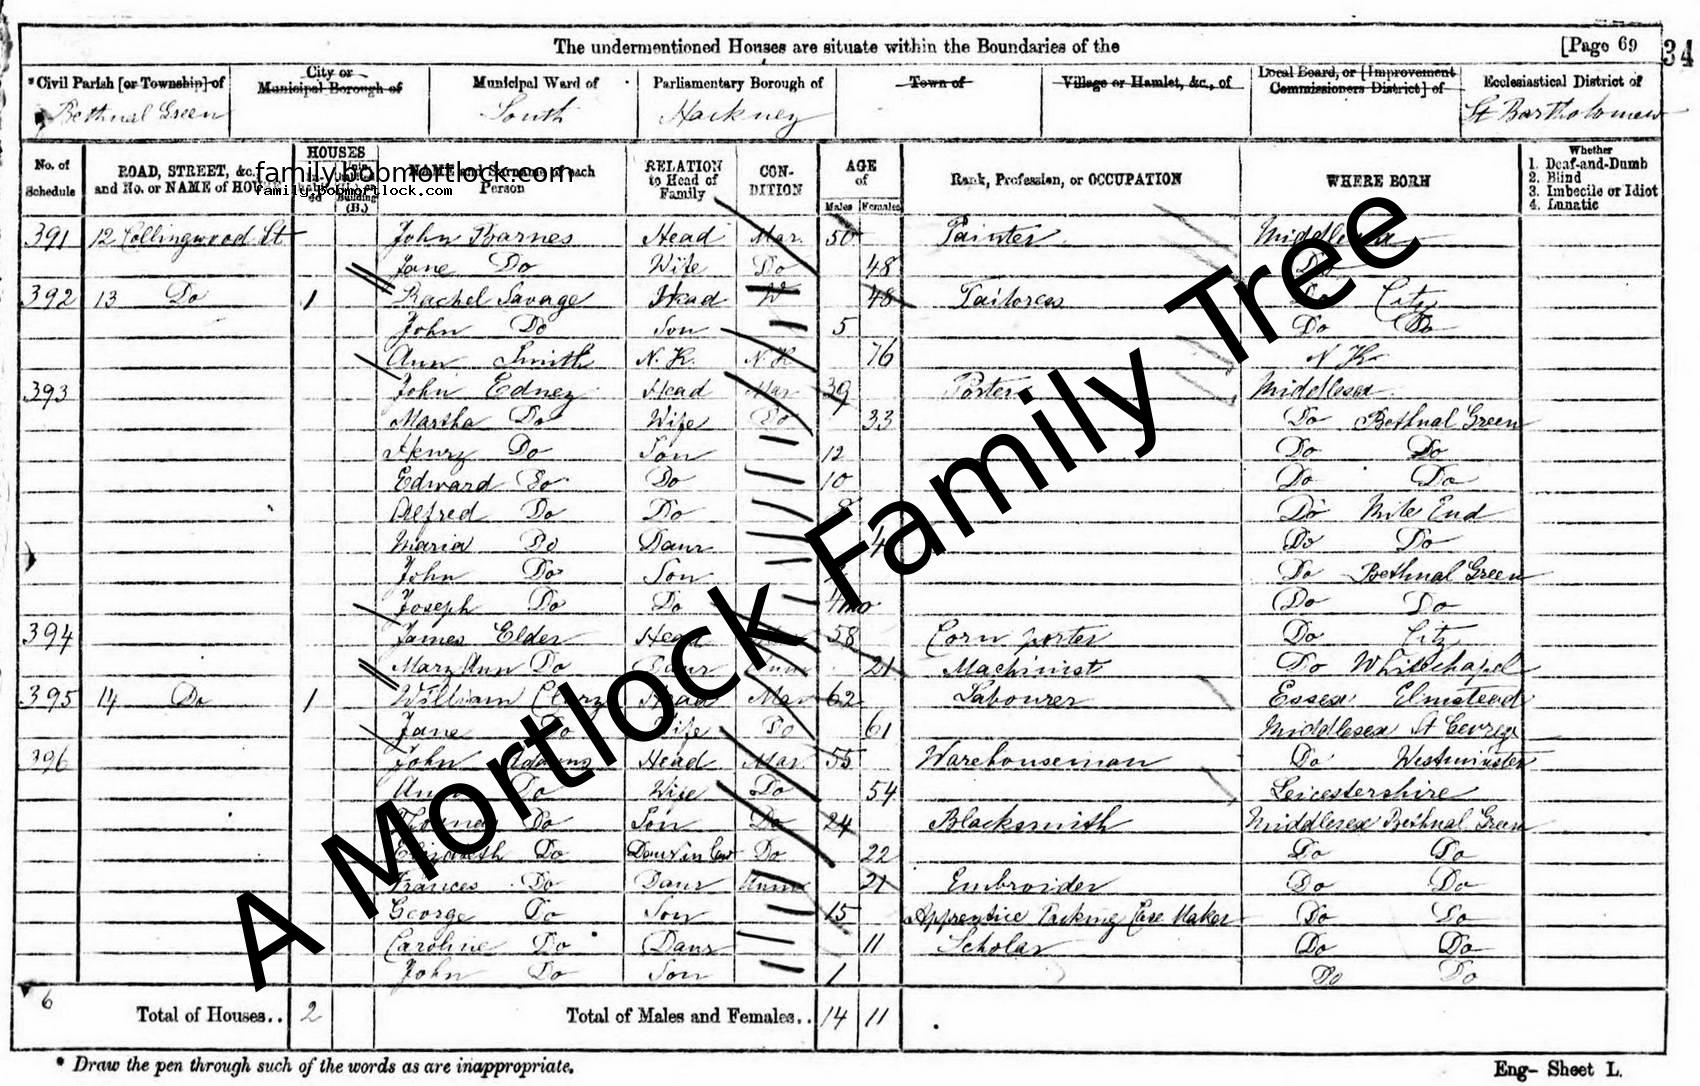 The undermentioned Houses are situate within the Boundaries of the [Page 69
34
*Civil Parish [or Township] of City or Municipal Borough of Municipal Ward of Parliamentary Borough of Town of Village or Hamlet, &c., of Local Board, or [Improvement Commissioners District] of Ecclesiastical District of
Bethnal Green South Hackney St Bartholomew
No. of Schedule ROAD, STREET, &c., and No. or NAME of HOUSE HOUSES NAME and Surname of each Person RELATION to Head of Family CON-DITION AGE of Males Females Rank, Profession, or OCCUPATION WHERE BORN Whether 1. Deaf-and-Dumb 2. Blind 3. Imbecile or Idiot 4. Lunatic
family.bobmortlock.com
family.bobmortlock.com
391 12 Collingwood St John Barnes Head Mar. 50 Painter Middlesex
Jane Do Wife Do 48 Do
392 13 Do 1 Rachel Savage Head W 48 Tailoress Do City
John Do Son 5 Do Do
Ann Smith N. K. N. K 76 N. K.
393 John Edney Head Mar 39 Porter Middlesex
Martha Do Wife Do 33 Do Bethnal Green
Henry Do Son 12 Do Do
Edward Do Do 10 Do Do
Alfred Do Do Do Mile End
Maria Do Daur 4 Do Do
John Do Son Do Bethnal Green
Joseph Do Do 4mo Do Do
394 James Elder Head 58 Corn porter Do City
Mary Ann Do Daur Unm 21 Machinist Do Whitechapel
395 14 Do 1 William Head Mar 62 Labourer Essex Elmstead
Jane Do Wife Do 61 Middlesex St George
396 John Head Mar 55 Warehouseman Do Westminster
Ann Do Wife Do 54 Leicestershire
Thomas Do Son Do 24 Blacksmith Middlesex Bethnal Green
Elizabeth Do Daur in law Do 22 Do Do
Frances Do Daur Unm 21 Embroider Do Do
George Do Son 15 Apprentice Packing Case Maker Do Do
Caroline Do Daur 11 Scholar Do Do
John Do Son 1 Do Do
6 Total of Houses.. 2 Total of Males and Females.. 14 11
* Draw the pen through such of the words as are inappropriate. Eng- Sheet L.
A Mortlock Family Tree